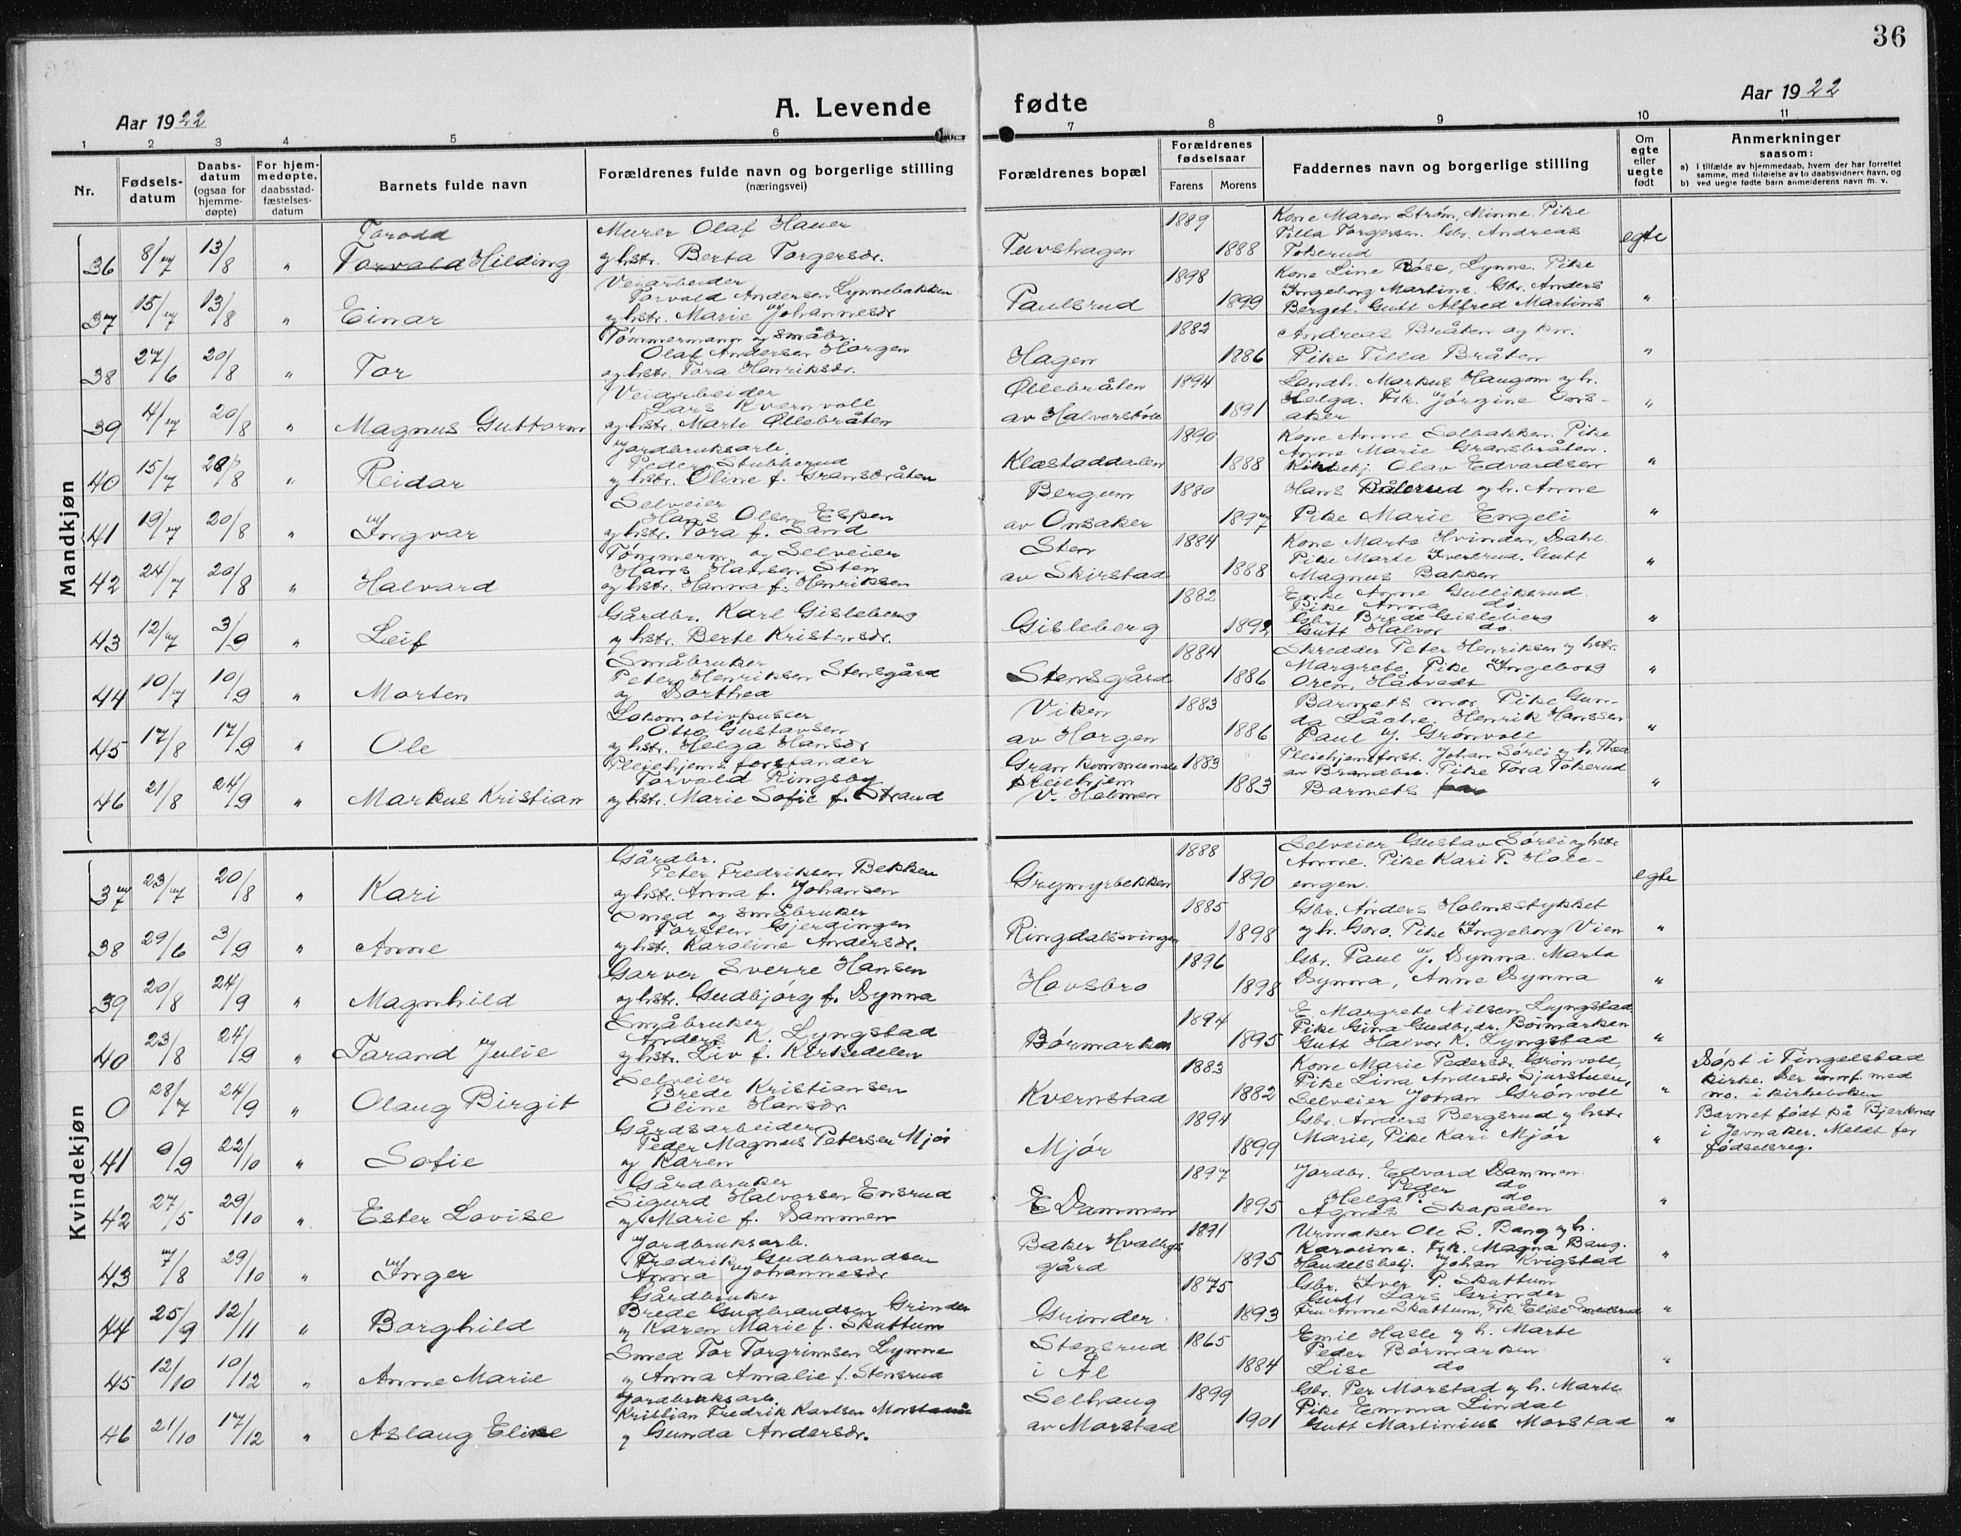 36
Aar 1922
A. Levende fødte
Aar 1922
1 2 3 4 5 6 7 8 9 10 11
Nr.
Fødsels-
datum
Daabs-
datum
(ogsaa for
hjemme-
døpte)
For hjem-
medøpte,
daabsstad-
fæstelses-
datum
Barnets fulde navn
Forældrenes fulde navn og borgerlige stilling
(næringsvei)
Forældrenes bopæl
Forældrenes
fødselsaar
Farens Morens
Faddernes navn og borgerlige stilling
Om
egte
eller
uegte
født
Anmerkninger
saasom:
a) i tilfælde av hjemmedaab, hvem der har forrettet
samme, med tilføielse av to daabsvidners navn, og
b) ved uegte fødte barn anmelderens navn m. v.
Mandkjøn
36 8/7 13/8 " Torodd
Torvald Hilding
Murer Olaf Hauer
og hstr. Berta Torgersdr.
Tuvshagen 1889 1888
Kone Maren Strøm, Minne. Pike
Tilla Torgersen. Gbr. Andreas
Tokerud
egte
37 15/7 13/8 " Einar
Veiarbeider
Torvald Andersen Lynnebakken
og hstr. Marie Johannesdr
Paulsrud 1898 1899
Kone Line Røse, Lynne. Pike
Ingeborg Martins. Gbr. Anders
Berget. Gutt Alfred Martins
"
38 27/6 20/8 " Tor
Tømmermann og småbr.
Olaf Andersen Horgen
og hstr. Tora Henriksdr.
Hagen 1882 1886
Andreas Bråten og kn.
Pike Tilla Bråten
"
39 4/7 20/8 " Magnus Guttorm
Veiarbeider
Lars Kvernvoll
og hstr. Marte Øllebråten
Øllebråten
av Halvorsbøle 1894 1891
Landh. Markus Haugom og h.
Helga. Frk. Jørgine Ons-
aker
"
40 15/7 20/8 " Reidar
Jordbruksarb.
Peder Stubberud
og hstr. Oline f. Gransbråten
Klæstaddalen 1890 1888
Kone Anne Solbakken. Pike
Anne Marie Gransbråten.
Olav Edvardsen
"
41 19/7 20/8 " Ingvar
Selveier
Hans Olsen Espen
og hstr. Tora f. Sand
Bergum
av Onsaker 1880 1897
Hans Bålerud og h. Anne
Pike Marie Engeli
"
42 24/7 20/8 " Halvard
Tømmerm. og Selveier
Hans Hansen Sten
og hstr. Hanna f. Henriksen
Sten
av Skirstad 1884 1888
Kone Marta Hvinden, Dahl.
Pike Marte Iversrud. Gutt
Magnus Bakken
"
43 12/7 3/9 " Leif
Gårdbr. Karl Gisleberg
og hstr. Berte Kristensdr.
Gisleberg 1882 1892
Enke Anne Gulliksrud.
Pike Anna do
Gbr. Brede Gisleberg
Gutt Halvor do
"
44 10/7 10/9 " Morten
Småbruker
Peter Henriksen Stensgård
og Dorthea
Stensgård 1884 1886
Skredder Peter Henriksen og hstr.
Margrete. Pike Ingeborg
Oren, Håtvedt
"
45 17/8 17/9 " Ole
Lokomotivpusser
Otto Gustavsen
og hstr. Helga Hansdr
Viken
av Horgen 1883 1886
Barnets mor. Pike Gun-
da Låche. Henrik Hanssen
Paul J. Grønvoll
"
46 21/8 24/9 " Markus Kristian
Pleiehjems forstander
Torvald Ringsby
og hstr. Marie Sofie f. Strand
Gran kommunale
pleiehjem
V. Helmen 1883 1883
Pleiehjemsforst. Johan Sørli og h. Thea
av Brandbu. Pike Tora Tokerud
Barnets far
"
Kvindekjøn
37 23/7 20/8 " Kari
Gårdbr.
Peter Fredriksen Bekken
og hstr. Anna f. Johansen
Grymyrbekken 1888 1890
Selveier Gustav Sørli og hstr
Anne. Pike Kari P. Hole-
engen.
egte
38 29/6 3/9 " Anne
Smed og småbruker
Torsten Gjerdingen
og hstr. Karoline Andersdr.
Ringdalssvingen 1885 1898
Gbr. Anders Holmsstykket
og h. Goro. Pike Ingeborg Vien
"
39 20/8 24/9 " Magnhild
Garver Sverre Hansen
og hstr. Gudbjørg f. Dynna
Hovsbro 1896 1898
Gbr. Paul J. Dynna. Marta
Dynna, Anne Dynna
"
40 23/8 24/9 " Tarand Julie
Småbruker
Anders K. Lyngstad
og hstr. Liv f. Kirkedelen
Børmarken 1894 1895
E. Margrete Nilsen Lyngstad
Pike Gina Gudbr.dr. Børmarken
Gutt Halvor K. Lyngstad
"
0 28/7 24/9 " Olaug Birgit
Selveier
Brede Kristiansen
Oline Hansdr
Kvernstad 1883 1882
Kone Marie Pedersdr. Grønvoll,
Pike Lina Andersdr Sjurstuen,
Selveier Johan Grønvoll
"
Døpt i Tingelstad
kirke. Der innf. med
no. i kirkeboken
41 9/9 22/10 " Sofie
Gårdsarbeider
Peder Magnus Petersen Mjør
og Karen
Mjør 1894 1899
Gbr. Anders Bergsrud og hstr
Marie, Pike Kari Mjør
"
Barnet født på Bjerknes
i Jevnaker. Meldt for
fødselsreg.
42 27/5 29/10 " Ester Lovise
Gårdbruker
Sigurd Halvorsen Ensrud
og Marie f. Dammen
E Dammen 1897 1895
Jordbr. Edvard Dammen
Peder do
Helga P. do
Agnes Skapalen
"
43 7/8 29/10 " Inger
Jordbruksarb.
Fredrik Gudbrandsen
Anna Johannesdr
Baker Hvalby
gård 1891 1895
Urmaker Ole S. Bang og h.
Karoline. Frk. Magna Bang.
Handelsbetj. Johan Kvigstad
"
44 25/9 12/11 " Borghild
Gårdbruker
Brede Gudbrandsen Grinder
og Karen Marie f. Skuttum
Grinder. 1875 1893
Gbr. Iver P. Skuttum
Gutt Lars Grinder
Fru Anne Skuttum, Frk Elise
"
45 12/10 10/12 " Anne Marie
Smed Tor Torgrimsen Lynne
og Anna Amalie f. Stensrud
Stensrud
i Ål 1865 1884
Emil Hasle og h. Marte
Peder Børmarken
Lise do
"
46 21/10 17/12 " Aslaug Elise
Jordbruksarb.
Kristian Fredrik Karlsen Morstad
og Gunda Andersdr.
Selhaug
av Morstad 1899 1901
Gbr. Per Morstad og h. Marte
Pike Emma Lindal
Gutt Martinius Morstad
"